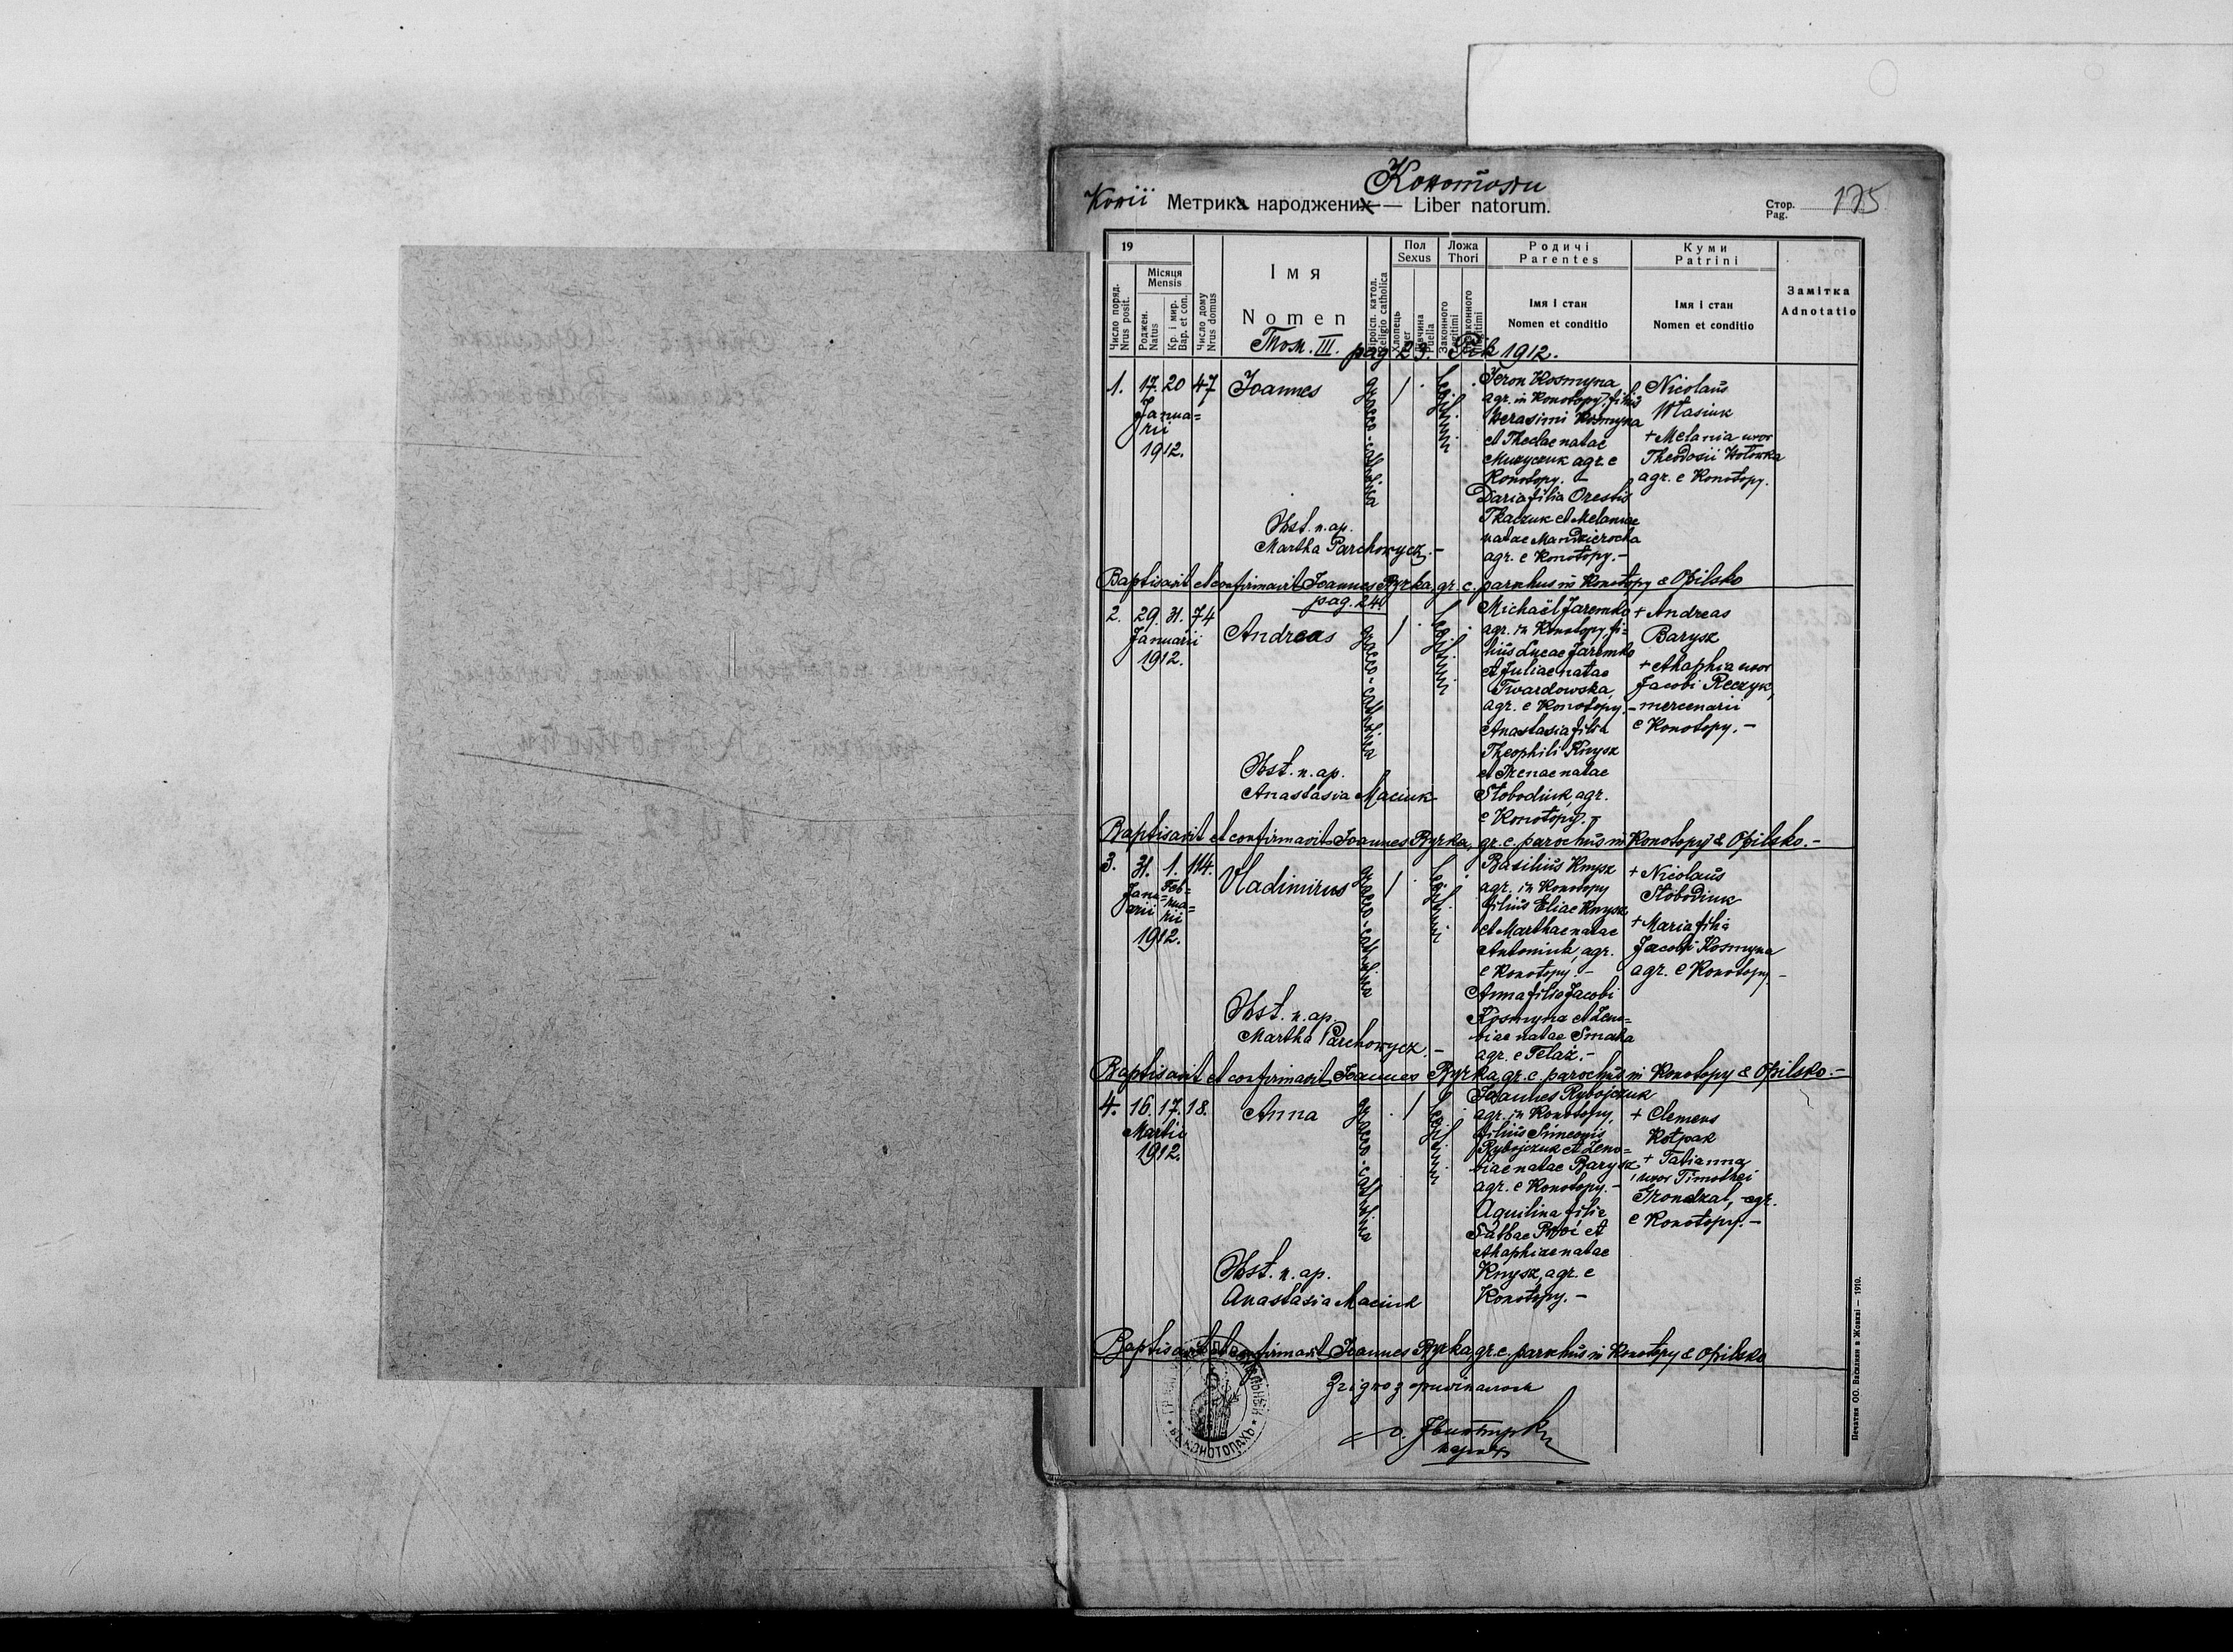 Конотопи
Копії Метрика народжених — Liber natorum.
Стор.
Pag. 175
19
Число поряд.
Nrus posit.
Місяця
Mensis
Роджен.
Natus
Кр. і мир.
Bap. et con.
Число дому
Nrus domus
Імя
Nomen
Віроісп. катол.
Religio catholica
Пол
Sexus
Хлопець
Puer
Дівчина
Puella
Ложа
Thori
Законного
Legitimi
Незаконного
Illegitimi
Родичі
Parentes
Імя і стан
Nomen et conditio
Куми
Patrini
Імя і стан
Nomen et conditio
Замітка
Adnotatio
Том. III. pag 23. Рік 1912.
1. 17. 20 47 Joannes
Janua=
rii
1912.
graeco-catholica
1 ·
legitimi
Jeron Kosmyna
agr. in Konotopy, filius
Gerasimi Kosmyna
et Theclae natae
Muzyczuk agr. e
Konotopy. –
Daria filia Orestis
Tkaczuk et Melaniae
natae Mandzierocha
agr. e Konotopy. –
Nicolaus
Własiuk
+ Melania uxor
Theodosii Wołowka
agr. e Konotopy.
Obst. n. ap.
Martha Parchowycz. –
Baptisavit et confirmavit Joannes Byrka, gr. c. parochus in Konotopy & Opilsko
pag. 24
2. 29. 31. 74 Andreas
Januarii
1912.
graeco-catholica
1 ·
legitimi
Michaël Jaremko
agr. in Konotopy, fi=
lius Lucae Jaremko
et Juliae natae
Twardowska,
agr. e Konotopy. –
Anastasia filia
Theophili Knysz
et Irenae natae
Słobodiuk, agr.
e Konotopy. –
+ Andreas
Barysz
+ Ahaphia uxor
Jacobi Reczyk,
mercenarii
e Konotopy. –
Obst. n. ap.
Anastasia Maciuk
Baptisavit et confirmavit Joannes Byrka, gr. c. parochus in Konotopy & Opilsko. –
3. 31. 1. 114. Vladimirus
Janu=
arii
Feb=
rua=
rii
1912.
graeco-catholica
1 ·
legitimi
Basilius Knysz
agr. in Konotopy
filius Eliae Knysz
et Marthae natae
Antoniuk, agr.
e Konotopy. –
Anna filia Jacobi
Kosmyna et Zeno=
biae natae Smaha
agr. e Telaż. –
+ Nicolaus
Słobodiuk
+ Maria filia
Jacobi Kosmyna
agr. e Konotopy. –
Obst. n. ap.
Martha Parchowycz. –
Baptisavit et confirmavit Joannes Byrka, gr. c. parochus in Konotopy & Opilsko. –
4. 16. 17. 18. Anna
Martii
1912.
graeco-catholica
· 1
legitimi
Joannes Rybojczuk
agr. in Konotopy,
filius Simeonis
Rybojczuk et Zeno=
biae natae Barysz
agr. e Konotopy. –
Aquilina filia
Sabbae et
Ahaphiae natae
Knysz, agr. e
Konotopy. –
+ Clemens
Kołpak
+ Tatianna
uxor Timothei
Grondzal, agr.
e Konotopy. –
Obst. n. ap.
Anastasia Maciuk
Baptisavit et confirmavit Joannes Byrka, gr. c. parochus in Konotopy & Opilsko
Згідно з оригіналом
парох
ВЪ КОНОТОПАХЪ
Печатня ОО. Василиян в Жовкві — 1910.